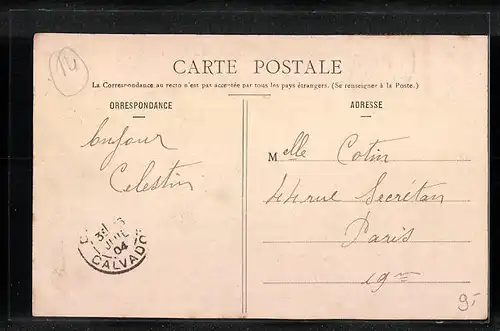 14
CARTE POSTALE
La Correspondance au recto n'est pas acceptée par tous les pays étrangers. (Se renseigner à la Poste.)
ORRESPONDANCE
ADRESSE
Celestin
Melle Cotin
44 rue Secrétan
Paris
19me
JUIL
04
CALVADOS
9.-